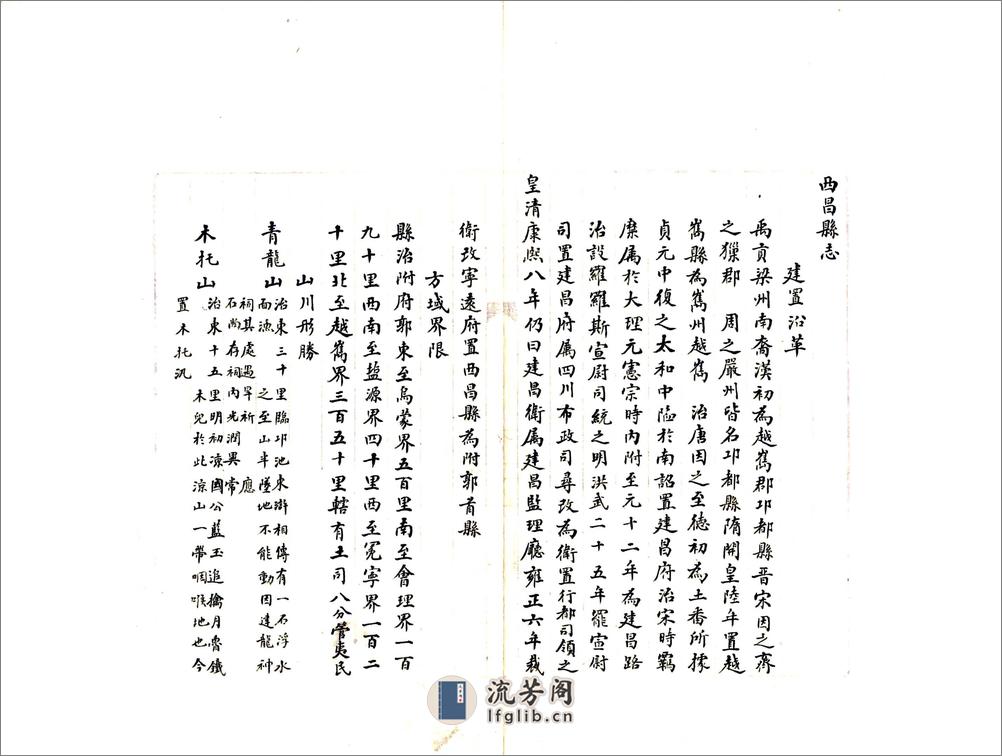 西昌縣志
建置沿革
禹貢梁州南裔漢初為越嶲郡邛都縣晉宋因之齊
之獠郡　周之嚴州皆名邛都縣隋開皇陸年置越
嶲縣為嶲州越嶲　治唐因之至德初為土番所據
貞元中復之太和中陷於南詔置建昌府治宋時羈
縻属於大理元憲宗時內附至元十二年為建昌路
治設羅羅斯宣尉司統之明洪武二十五年罷宣尉
司置建昌府属四川布政司尋改為衛置行都司領之
皇清康熙八年仍曰建昌衛属建昌監理廳雍正六年裁
衛改寧遠府置西昌縣為附郭首縣
方域界限
縣治附府郭東至烏蒙界五百里南至會理界一百
九十里西南至盐源界四十里西至冕寧界一百二
十里北至越嶲界三百五十里轄有土司八分管夷民
山川形勝
青龍山治東三十里臨邛池東湃相傳有一石浮水
而漁　之至山半墜地不能動因建龍神
祠其處遇旱祈　應
石尚存祠內光潤異常
木托山治東十五里明初涼國公藍玉追擒月魯鐵
木兒於此涼山一帶咽喉地也今
置木托汛
流芳阁
lfglib.cn